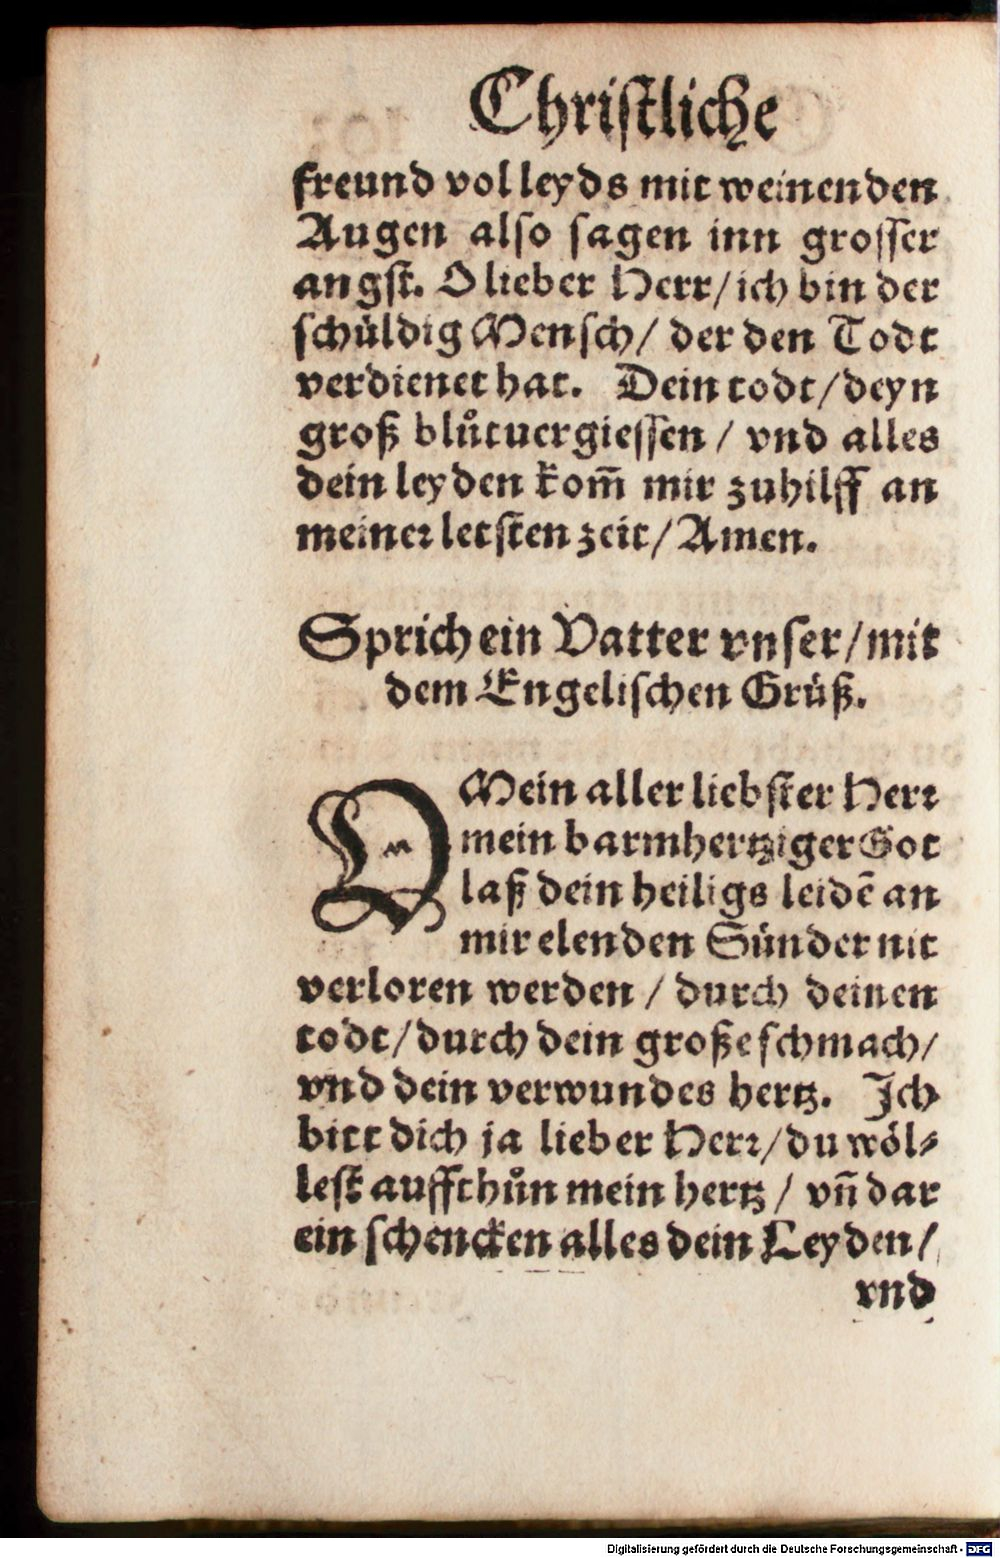 Christliche
freund vol leyds mit weinenden
Augen also sagen inn grosser
angst. O lieber Herr/ ich bin der
schuͤldig Mensch/ der den Todt
verdienet hat. Dein todt/ deyn
groß bluͦtuergiessen / vnd alles
dein leyden kom̃ mir zuhilff an
meiner letsten zeit/ Amen.
Sprich ein Vatter vnser/ mit
dem Engelischen Gruͤß.
O Mein aller liebster Herr
mein barmhertziger Got
laß dein heiligs leidẽ an
mir elenden Suͤnder nit
verloren werden / durch deinen
todt/ durch dein große schmach/
vnd dein verwundes hertz. Ich
bitt dich ja lieber Herr/ du woͤl⸗
lest auffthuͦn mein hertz / vñ dar
ein schencken alles dein Leyden/
vnd
Digitalisierung gefördert durch die Deutsche Forschungsgemeinschaft - DFG